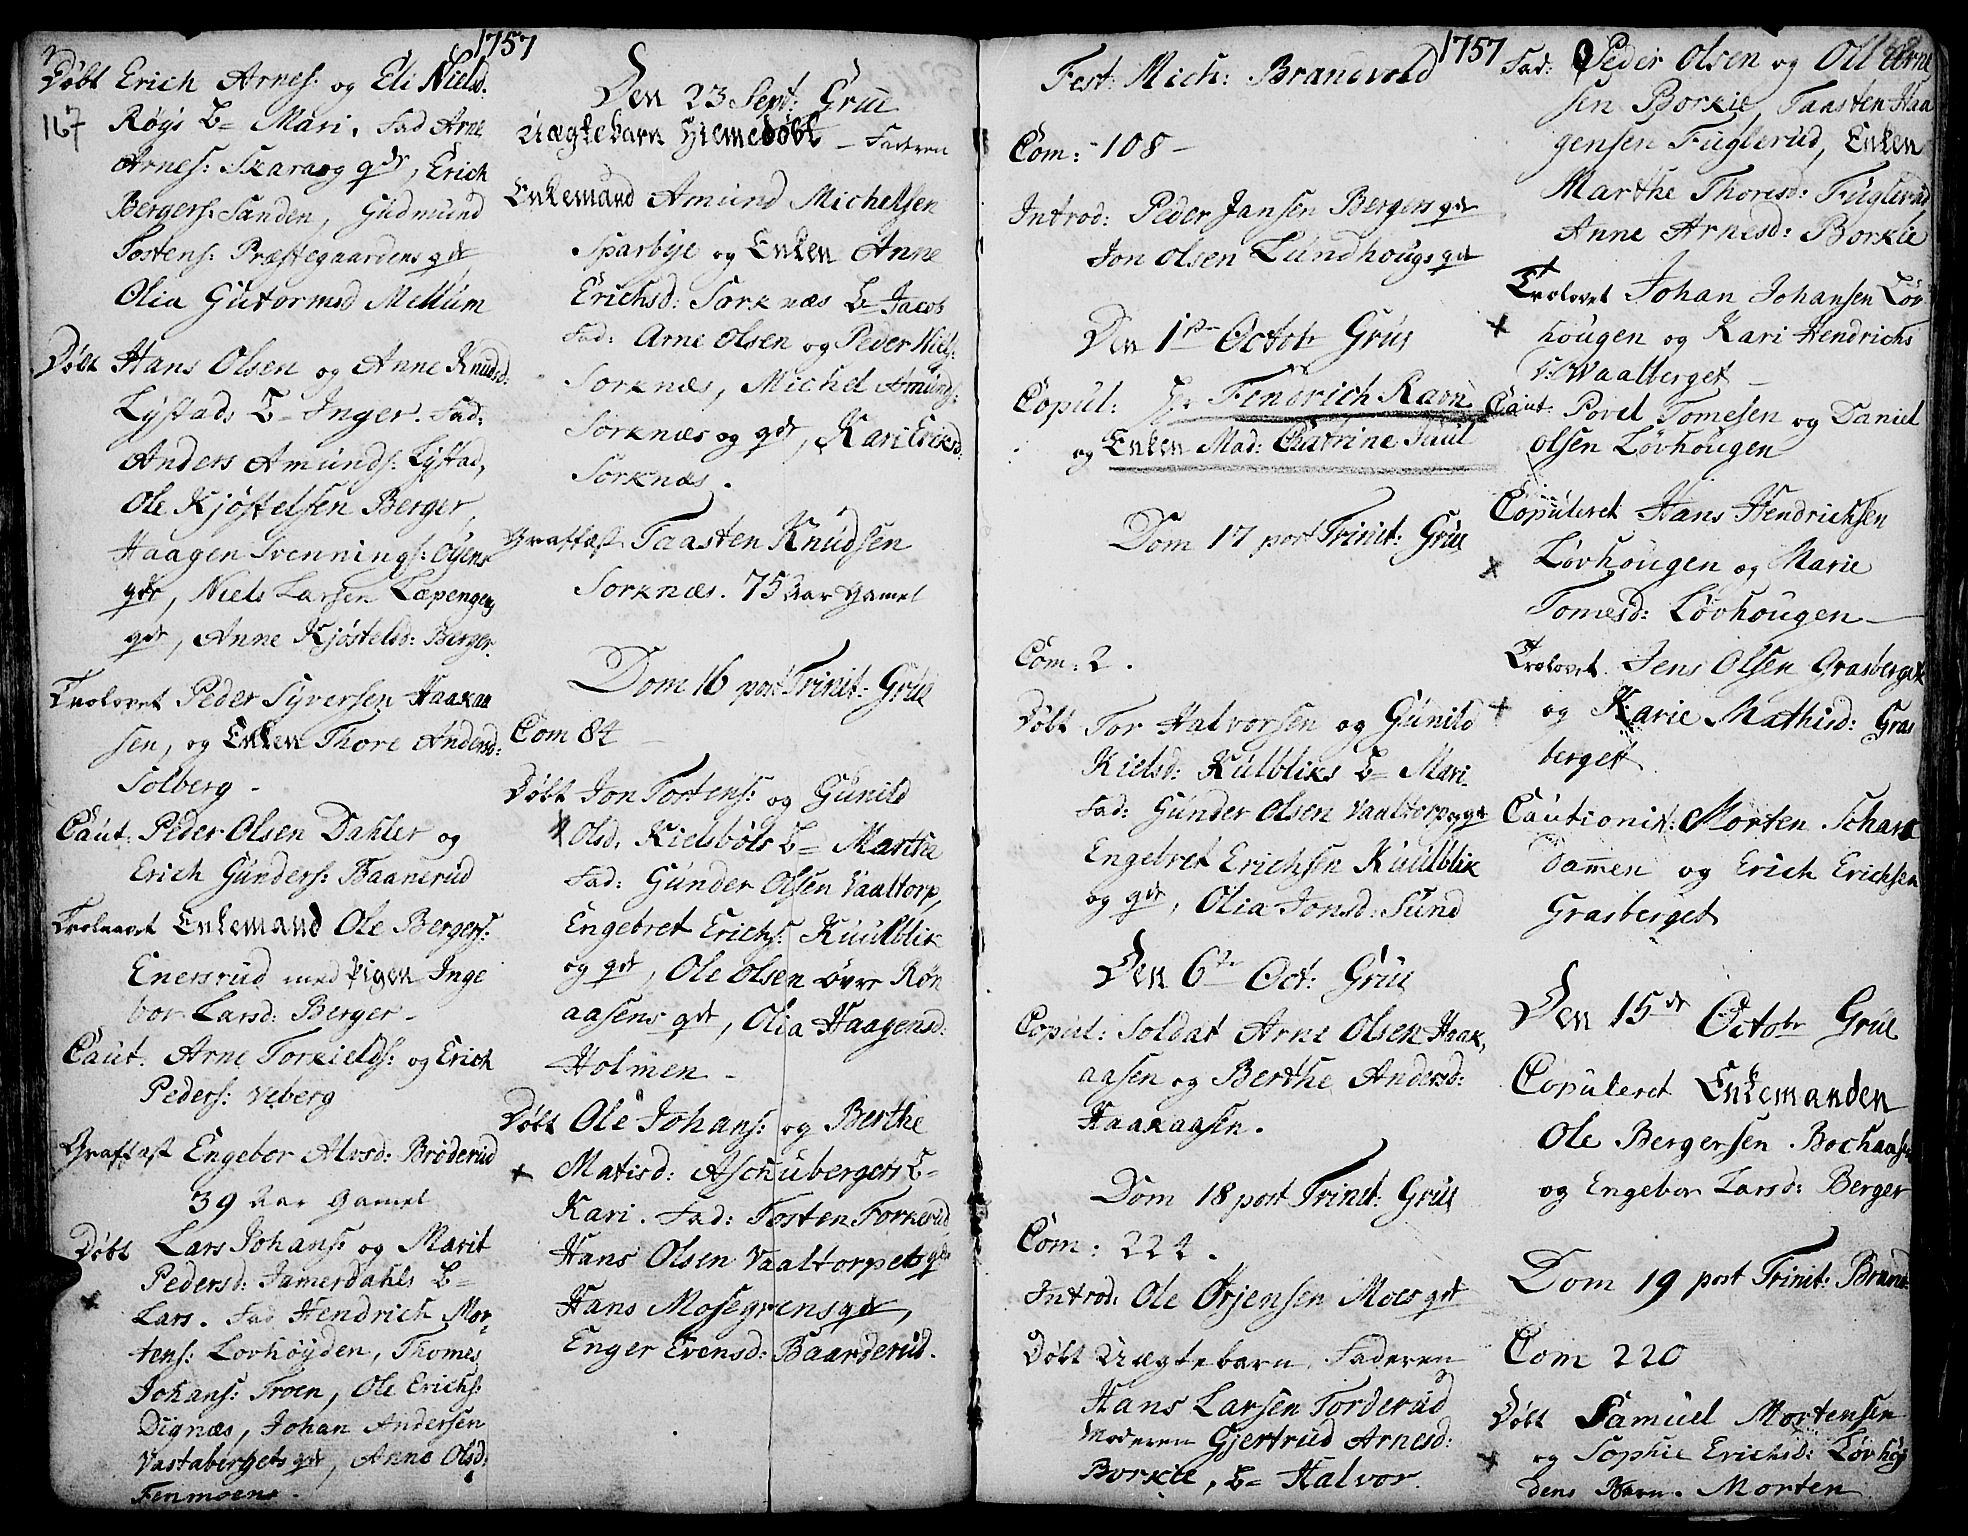 1757
Døbt Erich Arnes: og Eli Nielsd:
167 Røgs B= Mari. Fad Arne
Arnes: Skaraag qdr, Erich
Bergers: Sanden, Gudmund
Tostens: Præstegaardens qdr
Olia Gutormsd Mellum
Døbt Hans Olsen og Anne Knudsd:
Lystads B= Inger. Fad:
Anders Amunds: Lystad,
Ole Kjøstelsen Berger,
Haagen Svennings: Øyens
qdr, Niels Larsen Læpengens
qdr, Anne Kjøstelsd: Berger.
Trolovet Peder Syversen Haakaa
sen, og Enken Thore Andersd:
Solberg -
Caut: Peder Olsen Dahler og
Erich Gunders: Baanerud
Trolovet Enkemand Ole Bergers:
Enersrud med Pigen Inge
bor Larsd: Berger -
Caut. Arne Torkields: og Erich
Peders: Veberg
Graffæst Engebor Alvsd: Brøderud
39 Aar Gamel
Døbt Lars Johans: og Marit
Pedersd: Jamerdahls B=
Lars. Fad Hendrich Mor-
tens: Lovhøyden, Thomes
Johans: Troen, Ole Erichs:
Dignæs, Johan Andersen
Vastabergets qdr, Anne Olsd:
Tenmoens -
Den 23 Sept: Grue
Uægtebarn Hiemedøbt - Faderen
Enkemand Amund Michelsen
Sparbye og Enken Anne
Erichsd: Sorknæs B= Jacob
Fad: Arne Olsen og Peder Niels:
Sorknæs, Michel Amunds:
Sorknæs og qdr, Kari Eriksd:
Sorknæs.
Graffæst Taasten Knudsen
Sorknæs. 75 Aar Gamel
Dom 16 post Trinit: Grue
Com 84 -
Døbt Jon Tostens: og Gunild
Olsd. Kielsbøls B= Marthe
Fad: Gunder Olsen Vaaltorp,
Engebret Erichs: Kuulblik
og qdr, Ole Olsen Øvre Røn
aasens qdr, Olia Haagensd:
Holmen -
Døbt Ole Johans: og Berthe
Matisd: Aschubergets B=
Kari. Fad: Tosten Torkerud
Hans Olsen Vaaltorpets qdr
Hans Mosegrens qdr,
Enger Evensd: Baarderud.
1757
Fest: Mich: Brandvold
Com: 108 -
Introd: Peder Jansen Bergers qdr
Jon Olsen Lundhougs qdr
Den 1ste Octobr Grue
Copul: Hr Fendrich Ravn
og Enken Mad: Chatrine Juul
Dom 17 post Trinit: Grue
Com: 2.
Døbt Tor Halvorsen og Gunild
Kielsd: Kulbliks B= Mari
Fad: Gunder Olsen Vaaltorps qdr
Engebret Erichsen Kuulblik
og qdr, Olia Jonsd: Sund
Den 6te Oct: Grue
Copul: Soldat Arne Olsen Haak,
aasen og Berthe Andersd:
Haakaasen.
Dom 18 post Trinit: Grue
Com: 222.
Introd: Ole Ørjensen Moes qdr
Døbt Uægtebarn. Faderen
Hans Larsen Torderud
Moderen Gjertrud Arnesd:
Borkie, B= Halvor.
Fad: Peder Olsen og Oll Arne
sen Borkie, Taasten Haa
gensen Fuglerud, Enken
Marthe Thoresd: Fuglerud
Anne Arnesd: Borkie
Trolovet Johan Johansen Løv
hougen og Kari Hendrichs
D: Waalberget -
Caut: Povel Tomesen og Daniel
Olsen Løvhougen
Copuleret Hans Hendrichsen
Løvhougen og Marie
Tomesd: Løvhougen -
Trolovet. Jens Olsen Grasberget
og Karie Mathisd: Gras
berget
Cautionist: Morten Schare
Dammen og Erich Erichsen
Grasberget
Den 15de Octobr Grue
Copuleret Enkemanden
Ole Bergersen Bochaasen
og Engebor Larsd: Berger
Dom 19 post Trinit: Brand:
Com 220
Døbt Samuel Mortensen
og Sophie Erichsd: Løvhøy
dens Barn. Morten